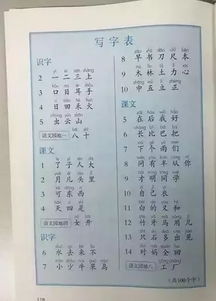 写字表
识字
2 一 二 三 上
3 口 目 耳 手
4 日 田 禾 火
5 虫 云 山
语文园地一 八 十
课文
1 了 子 人 大
2 月 儿 头 里
3 可 东 西
4 天 四 是
语文园地四 女 开
识字
6 水 去 来 不
7 小 少 牛 果 鸟
8 早 书 刀 尺 本
9 木 林 土 力 心
10 中 五 立 正
课文
5 在 后 我 好
6 长 比 巴 把
7 下 个 雨 们
8 问 有 半 从 你
9 才 明 同 学
10 自 己 衣
11 白 的 又 和
12 竹 牙 马 用 几
13 只 石 多 出 见
14 对 妈 全 回
语文园地八 工 厂
（共100个字）